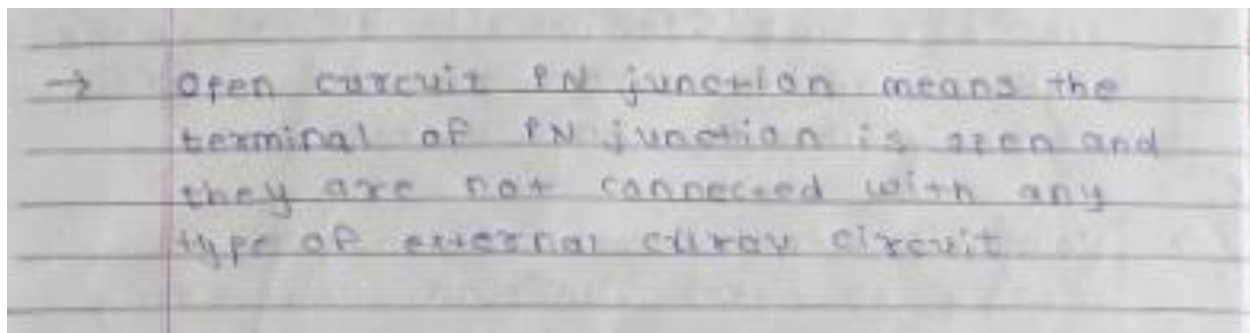 → Open curcuit PN junction means the
terminal of PN junction is open and
they are not connected with any
type of external circuit